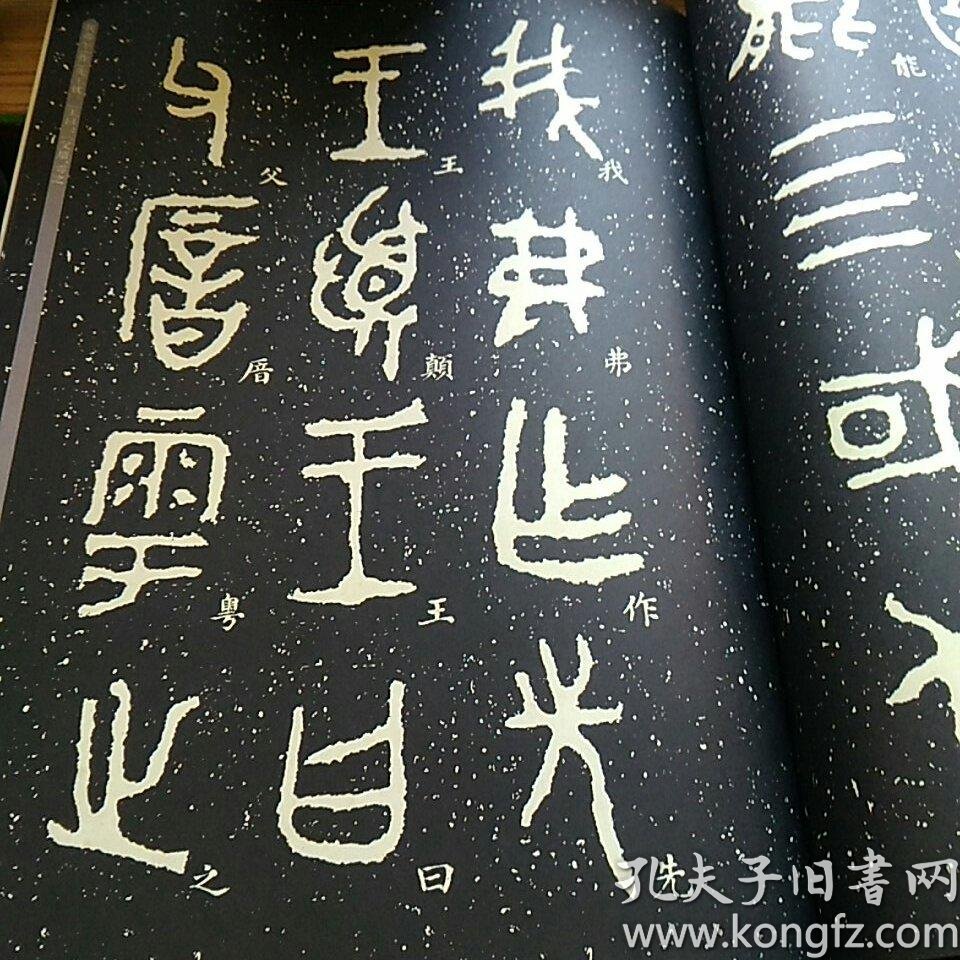 能
我弗作先
王顛王曰
父厝粤之
孔夫子旧書网
www.kongfz.com